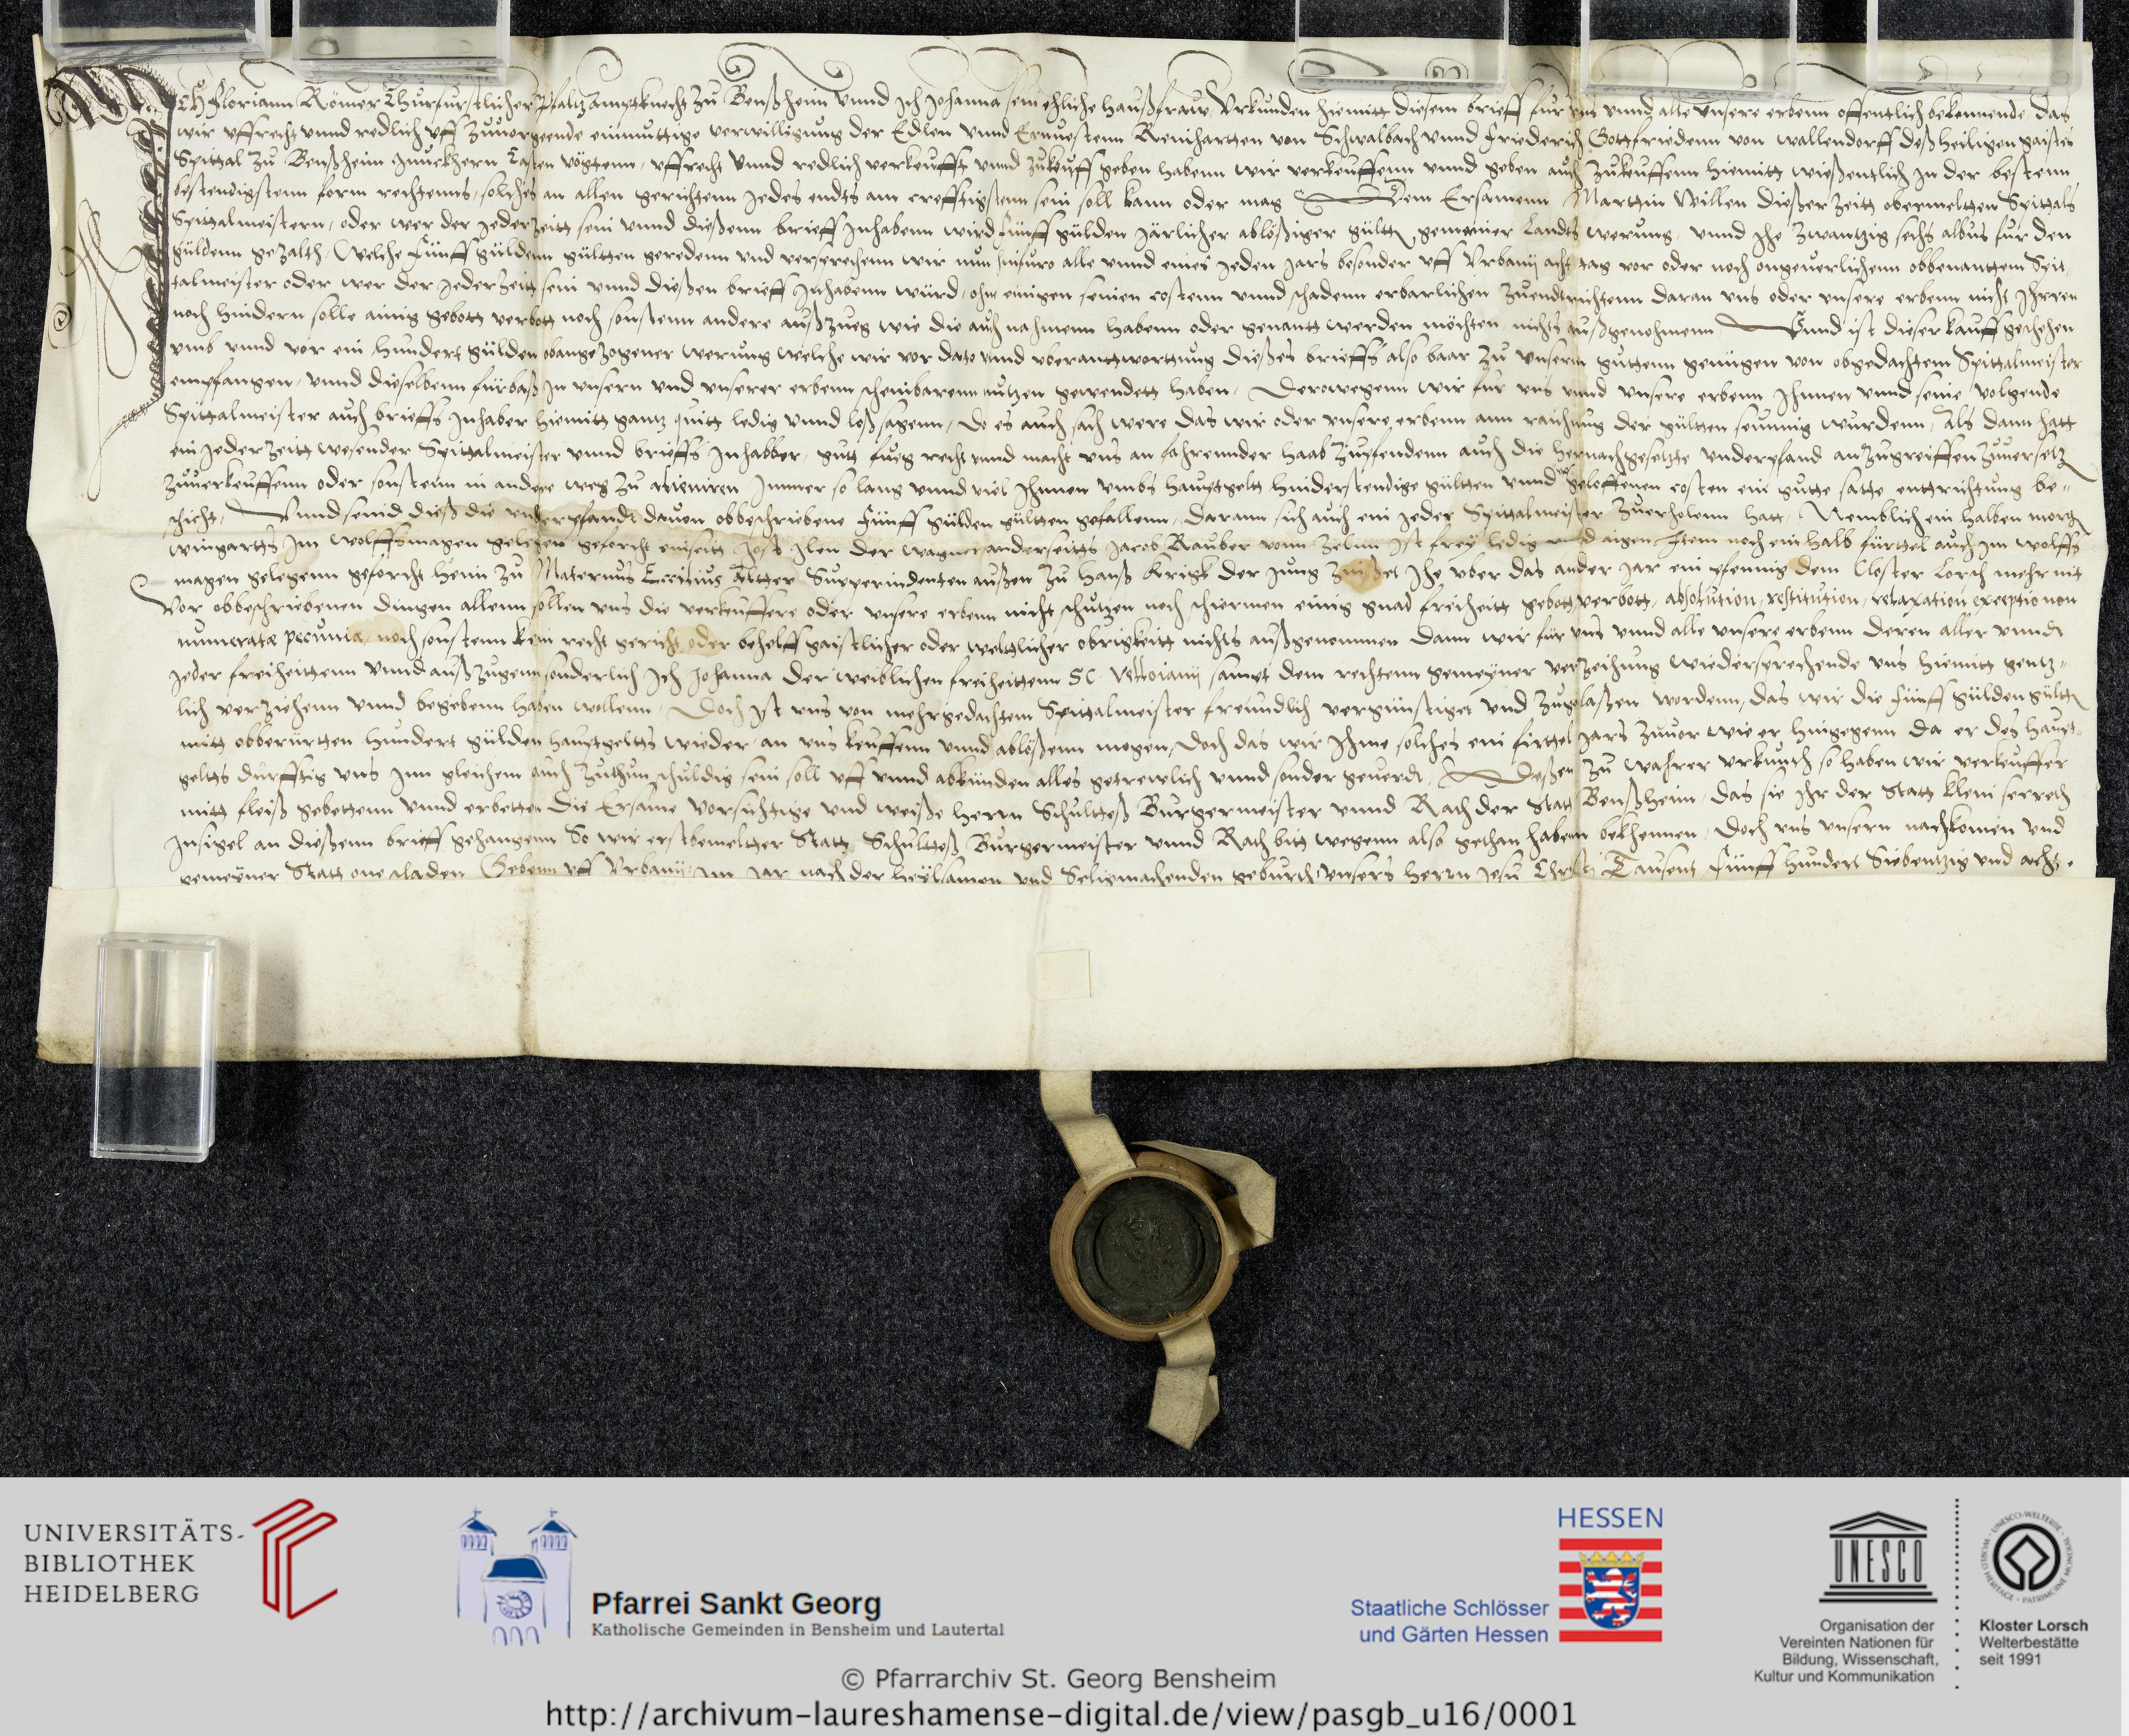 Ich Floriann Römer Churfurstlicher Pfaltz Amptsknecht zu Benßheim vnnd Ich Johanna sein ehliche haußfrauw Vrkunden hiemitt diesem brieff fur vns vnnd alle vnsere erbenn offentlich bekennende, das
wir vffrecht vnnd redlich vff zuuorgeende einmuttige verwilligung der Edlen vnnd Ernuestenn Reinhartten von Schwalbach vnnd Friederich Gottfriedenn von wallendorff deß heiligen gaistes
Spittal zu Benßheim Castenvögtenn, vffrecht vnnd redlich verkeufft vnnd zukeuff geben habenn wir verkeuffenn vnnd geben auch zukeuffenn hiemitt wießentlich in der bestenn
bestendigstenn form rechtenns, solches an allen gerichtenn Jedes endts am crefftigstenn sein soll kann oder mag Dem Ersamenn Marttin Willen dießer zeitt obermeltten Spittals
Spittalmeistern, oder wer der Jederzeitt sein vnnd dießenn brieff Inhabenn wird fünff gülden Järlicher ablößiger gültt gemeiner Landts werung, vnnd Jhe zwantzig sechs albus fur den
güldenn gezalth, Welche fünff güldenn gültten geredenn vnd versprechenn wir nun hinfuro alle vnnd eines Jeden Jars besonder vff Vrbanij acht tag vor oder noch ongeuerlichenn obbenanttem Spit,
talmeister oder wer der Jederzeitt sein vnnd dießen brieff Inhabenn würd, ohn einigen seinen costenn vnnd schadenn erbarlichen zuendtrichtenn daran vns oder vnsere erbenn nicht Jhrren
noch hindern solle ainig gebott verbott noch sonstenn andere außzueg wie die auch nahmenn habenn oder genantt werden möchten, nichts außgenohmenn Vnnd ist dieser kauff geschehen
vmb vnnd vor ein hundert gülden obangezogener werung welche wir vor dato vnnd vberanttworttung dießes brieffs also baar zu vnserm guttenn genügen von obgedachtem Spittalmeister
empfangen, vnnd dieselbenn fürbaß in vnsern vnd vnserer erbenn scheinbarenn nutzen gewendett haben, Derowegenn wir fur vns vnnd vnsere erbenn Ihnnen vnnd seine volgende
Spittalmeister auch brieffs Inhaber hiemitt gantz quitt ledig vnnd loß sagenn, Do es auch sach were das wir oder vnsere erbenn ann raichung der gültten seumig wurdenn, Als dann hatt
ein Jederzeitt wesender Spittalmeister vnnd brieffs Inhabber, gutt fueg recht vnnd macht vns an fahrennder Haab zupfendenn auch die hernachgesetzte vnderpfand anzugreiffen zuuersetz
zuuerkeuffenn oder sonstenn in andere weg zu alieniren Immer so lang vnnd viel Ihnnen vmbs hauptgeltt hinderstendige gültten vnnd geloffenen costen ein gutte satte enttrichtung be-
schicht, Vnnd seind dieß die vnderpfandt dauon obbeschriebene fünff gülden gültten gefallenn, darann sich auch ein Jeder Spittalmeister zuerholenn hatt, Nemblich ein halben morg
wingartts Im wolffsmagen gelegen geforcht einseitt Jost der wagner anderseitts Jacob Rauber vonn Zelnn Ist frey ledig vnnd aigen, Item noch ein halb fürttel auch Im wolffs
magen gelegenn geforcht hinn zu Maternus Eccitius Altter Supperindenten außen zu Hanß Krigk der Jung zinßet Jhe vber das ander Jar ein pfennig dem Closter Lorch mehr nit
Vor obbeschriebenen dingen allenn sollen vns die verkeuffere oder vnsere erbenn nicht schutzen noch schirmen einig gnad freiheitt gebott verbott, absolution, restitution, relaxation exceptio non
numeratæ pecuniæ, noch sonstenn kein recht gericht oder behelff gaistlicher oder welttlicher obrigkeitt nichts außgenommen Dann wir für vns vnnd alle vnsere erbenn deren aller vnndt
Jeder freiheittenn vnnd außzugenn sonderlich Ich Johanna der weiblichen freiheittenn SC. Velleianij sampt dem rechtenn gemeyner verzeihung wiedersprechende vns hiemitt gentz-
lich verziehenn vnnd begebenn haben wollenn, Doch Ist vns von mehrgedachtem Spittalmeister freundlich vergünstiget vnd zugelaßen wordenn, das wir die fünff gülden gültt
mitt obberürtten hundert gülden hauptgeltts wieder an vns keuffenn vnnd ablößenn mogen, Doch das wir Ihme solches ein firttel Jars zuuor wie er hingegenn da er des haupt-
geltts durfftig vns Inn gleichem auch zuthun schuldig sein soll vff vnnd abkünden alles getrewlich vnnd sonder geuerdt, Deßen zu wahrer vrkundt so haben wir verkeuffer
mitt fleiß gebettenn vnnd erbetten die Ersame vorsichtige vnd weiße herrn Schultteß Burgermeister vnnd Rath der Statt Benßheim, das sie Ihr der Statt klein secreth
Insigel an dießenn brieff gehangenn So wir erstbemeltter Statt Schultteß Burgermeister vnnd Rath bitt wegenn also gethan habenn bekhennen, Doch vns vnsern nachkomen vnd
gemeyner Statt one Gebenn vff Vrbanij, im Jar nach der heylsamen vnd Seligmachenden geburth vnsers herrn Jesu Christi Tausent fünff hundert Siebentzig vnd acht.
UNIVERSITÄTS-
BIBLIOTHEK
HEIDELBERG
Pfarrei Sankt Georg
Katholische Gemeinden in Bensheim und Lautertal
HESSEN
Staatliche Schlösser
und Gärten Hessen
UNESCO
Organisation der
Vereinten Nationen für
Bildung, Wissenschaft,
Kultur und Kommunikation
Kloster Lorsch
Welterbestätte
seit 1991
© Pfarrarchiv St. Georg Bensheim
http://archivum-laureshamense-digital.de/view/pasgb_u16/0001